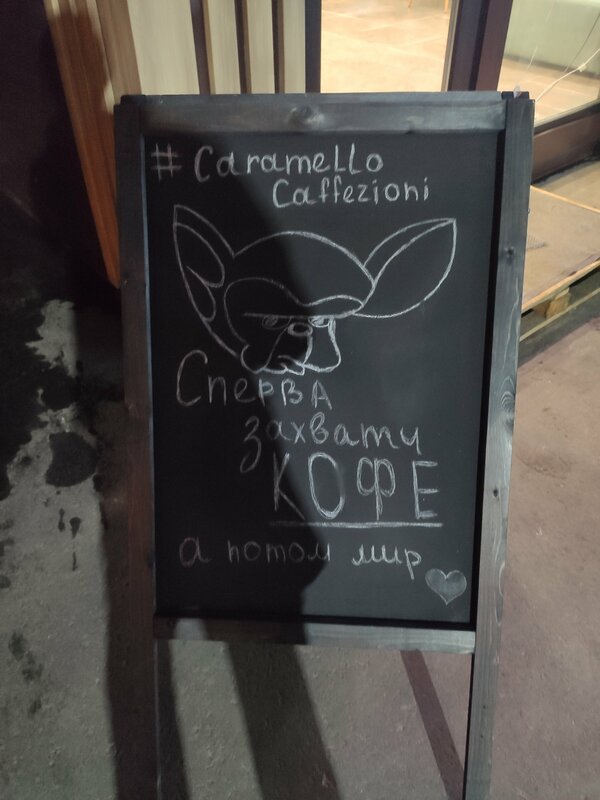 # Caramello
Caffezioni
Сперва
захвати
КОФЕ
а потом мир